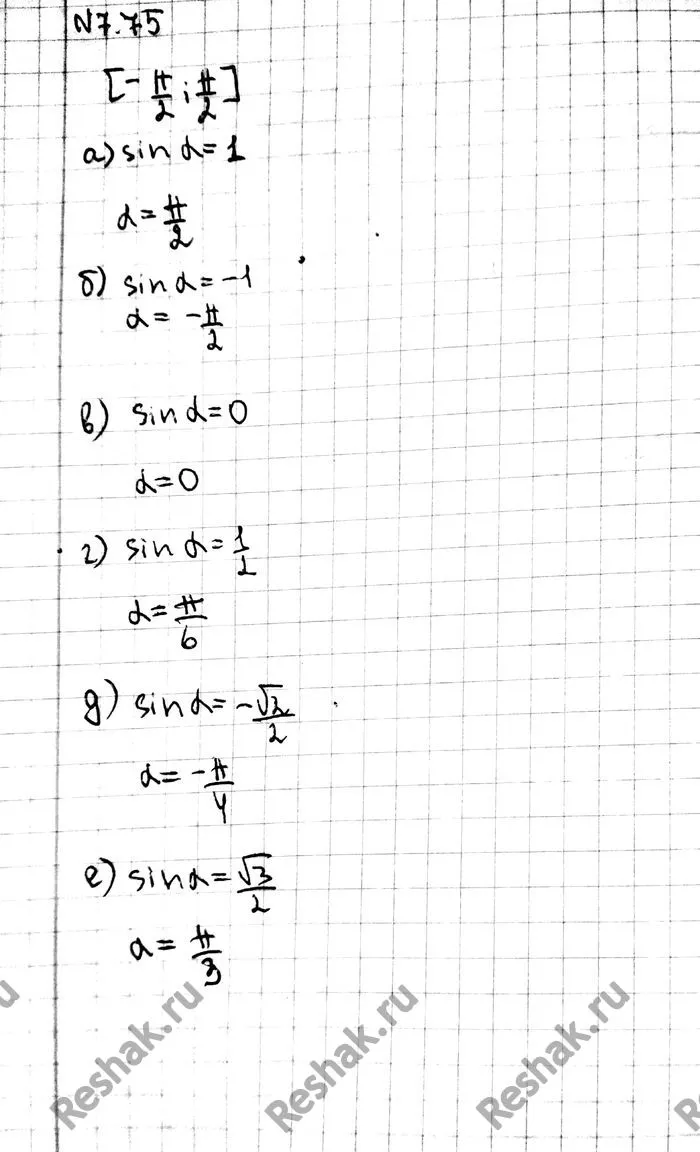 №7.75
[-π/2; π/2]
а) sin α = 1
α = π/2
б) sin α = -1
α = -π/2
в) sin α = 0
α = 0
г) sin α = 1/2
α = π/6
д) sin α = -√2/2
α = -π/4
е) sin α = √3/2
α = π/3
Reshak.ru
Reshak.ru
Reshak.ru